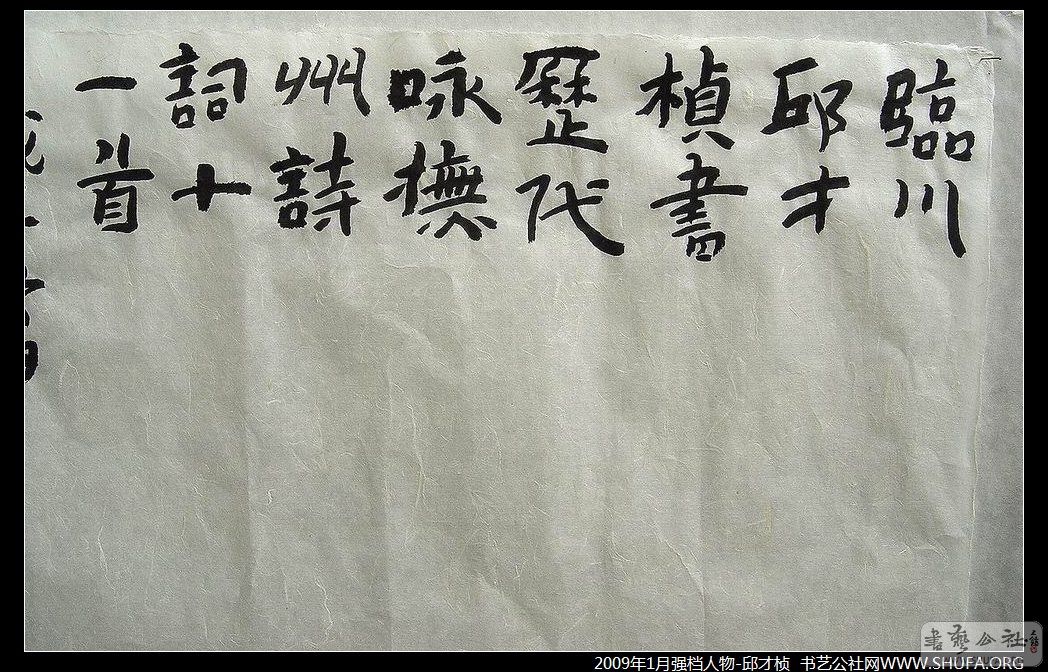 臨川
邱才
楨書
歷代
咏撫
州詩
詞十
一首
2009年1月强档人物-邱才桢 书艺公社网WWW.SHUFA.ORG
书艺公社